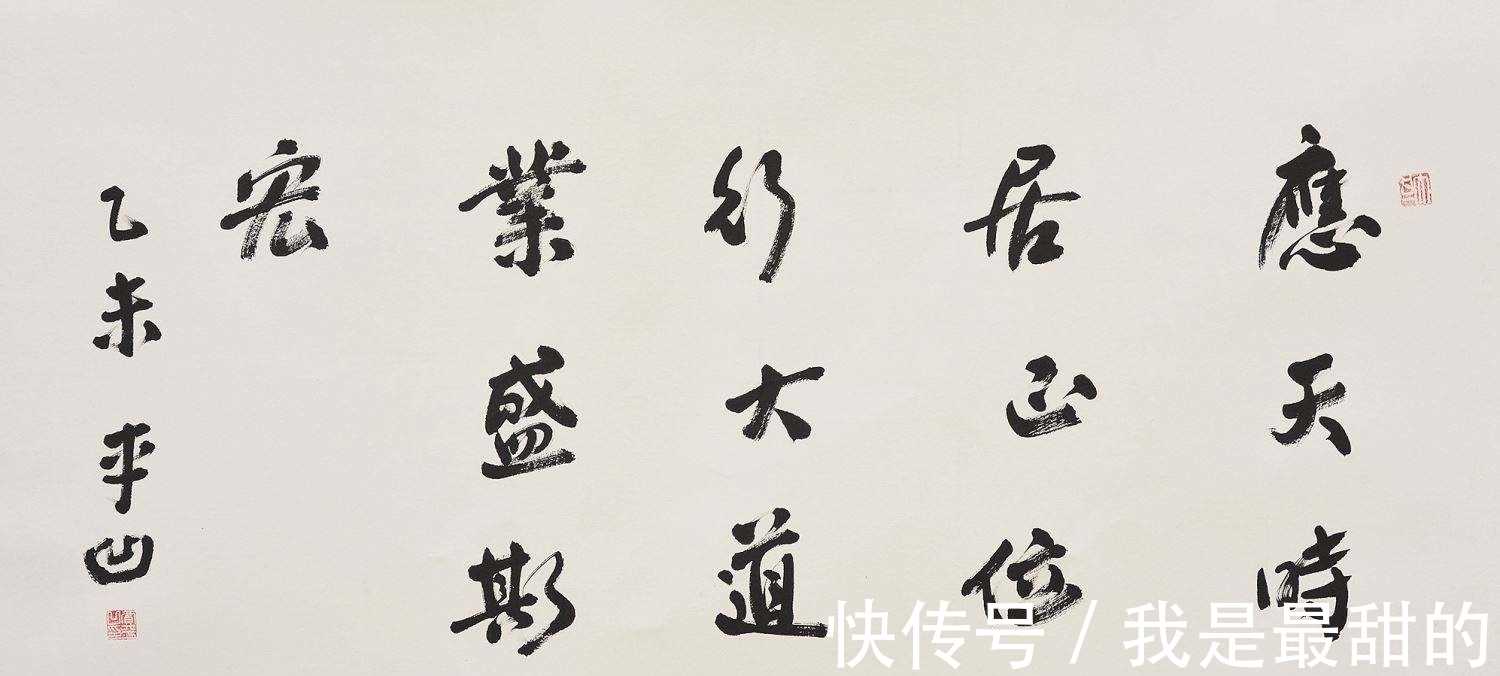 應天時
居正位
行大道
業盛斯
宏
乙未 平凹
快传号 / 我是最甜的